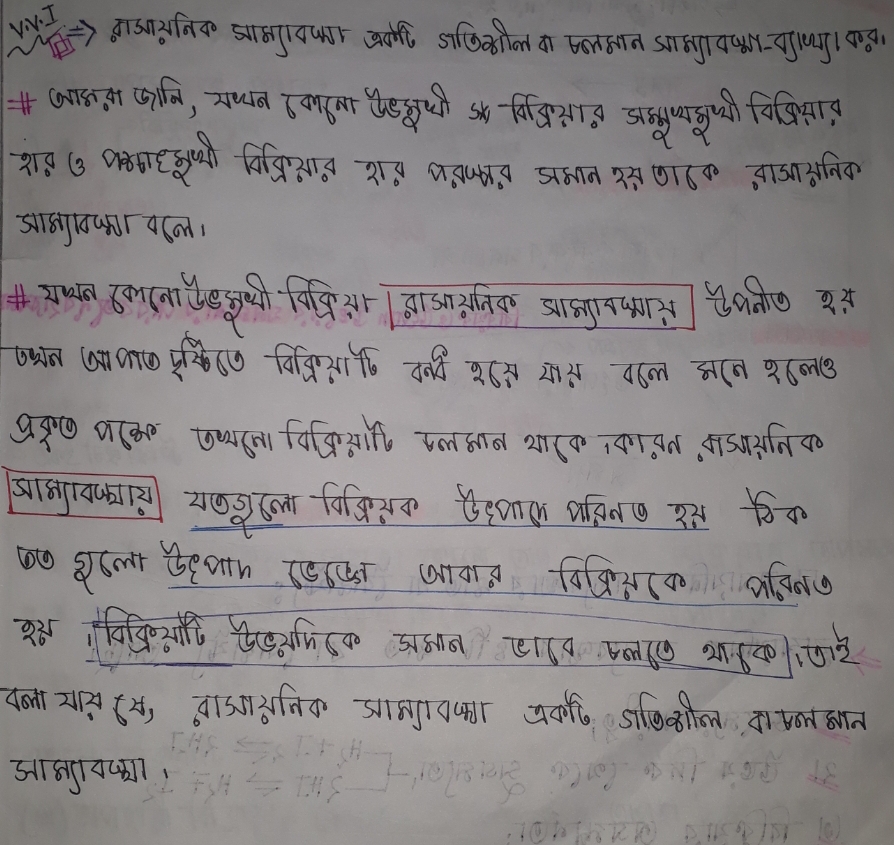 V.V.I ⇒ রাসায়নিক সাম্যাবস্থা একটি গতিশীল বা চলমান সাম্যাবস্থা-ব্যাখ্যা কর।
# আমরা জানি, যখন কোনো উভমুখী বিক্রিয়ার সম্মুখমুখী বিক্রিয়ার
হার ও পশ্চাৎমুখী বিক্রিয়ার হার পরস্পর সমান হয় তাকে রাসায়নিক
সাম্যাবস্থা বলে।
# যখন কোনো উভমুখী বিক্রিয়া রাসায়নিক সাম্যাবস্থায় উপনীত হয়
তখন আপাত দৃষ্টিতে বিক্রিয়াটি বন্ধ হয়ে যায় বলে মনে হলেও
প্রকৃত পক্ষে তখনো বিক্রিয়াটি চলমান থাকে। কারন রাসায়নিক
সাম্যাবস্থায় যতগুলো বিক্রিয়ক উৎপাদে পরিনত হয় ঠিক
তত গুলো উৎপাদ ভেঙ্গে আবার বিক্রিয়কে পরিনত
হয়। বিক্রিয়াটি উভয়দিকে সমান ভাবে চলতে থাকে। তাই
বলা যায় যে, রাসায়নিক সাম্যাবস্থা একটি গতিশীল বা চলমান
সাম্যাবস্থা।